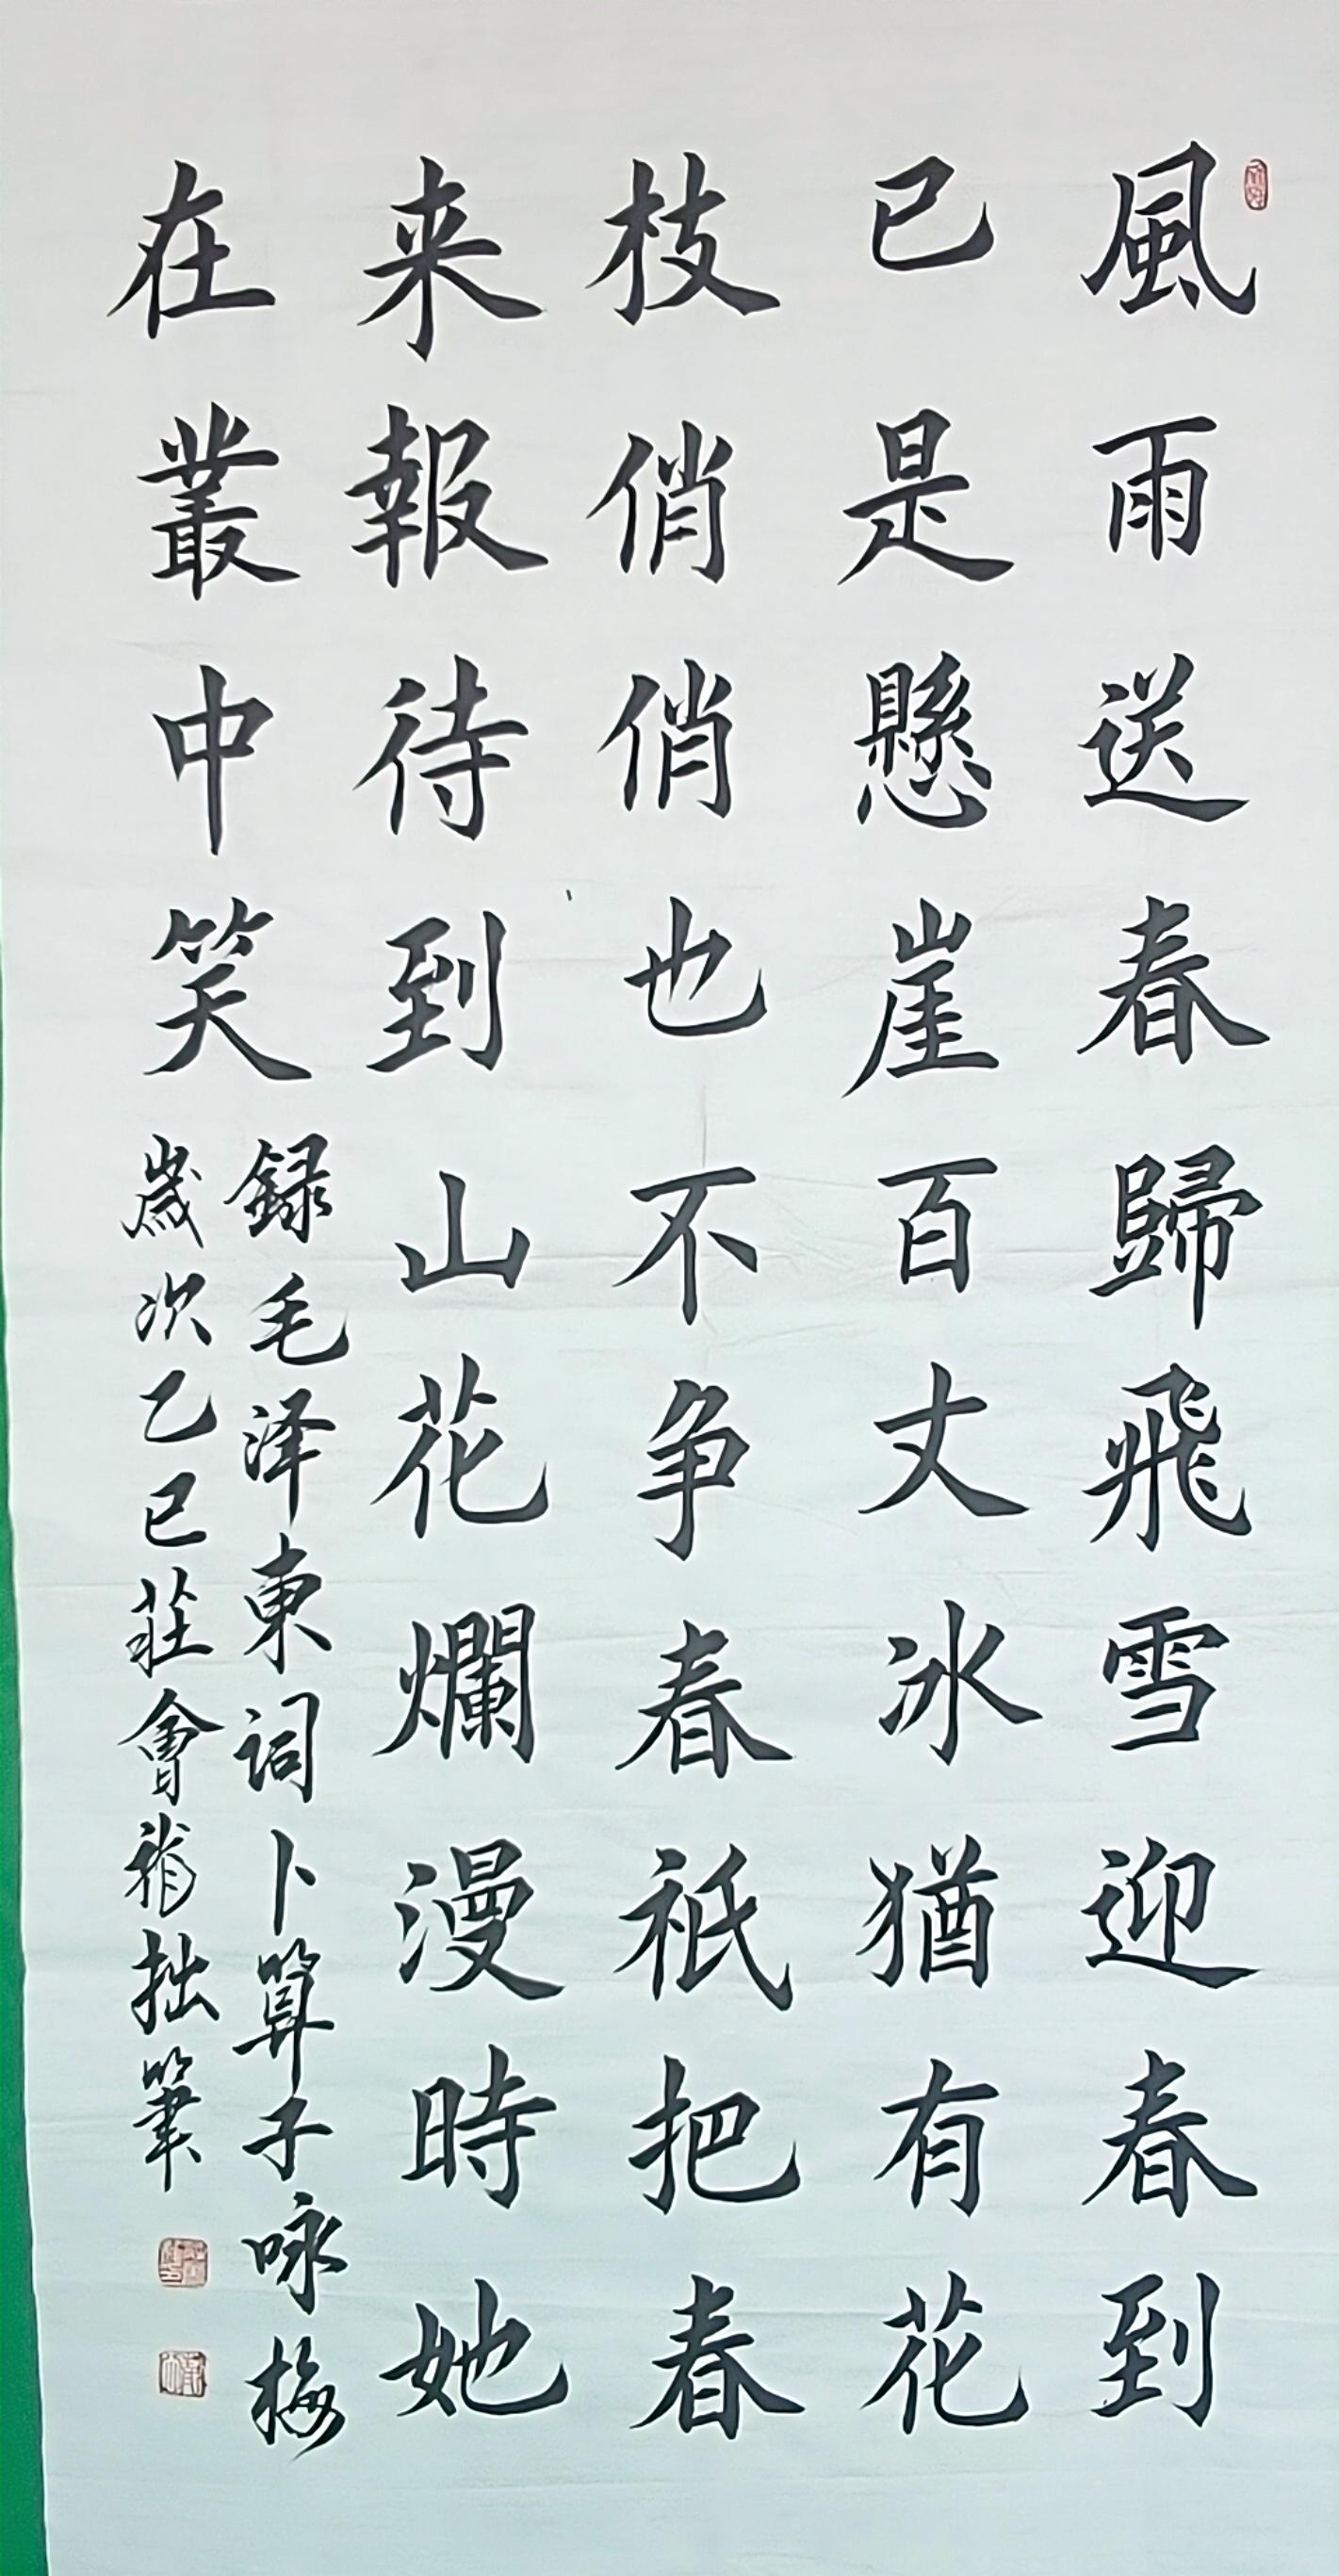 風雨送春歸飛雪迎春到
已是懸崖百丈冰猶有花
枝俏俏也不争春祇把春
来報待到山花爛漫時她
在叢中笑
録毛泽東词卜算子咏梅
歲次乙巳莊會龍拙筆